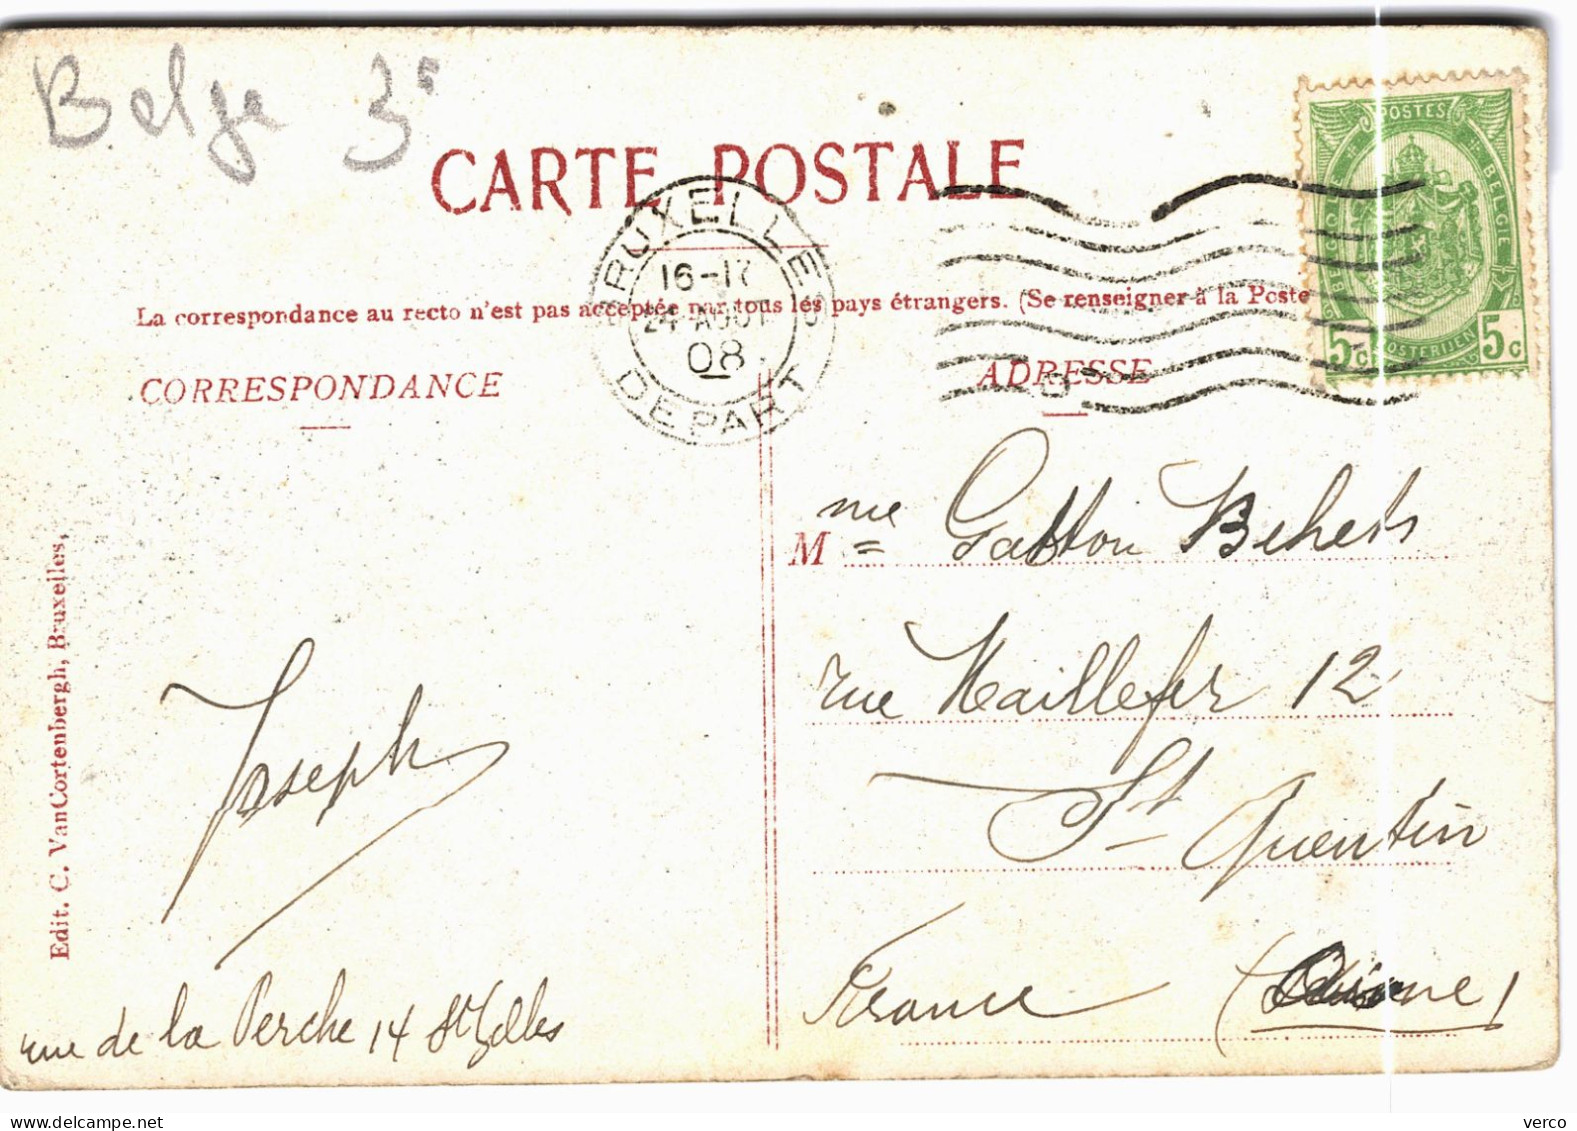 Belge 3°
CARTE POSTALE
BRUXELLES
16-17
24 AOUT
08
DEPART
POSTES
BELGIE
5c POSTERIJEN 5c
La correspondance au recto n'est pas acceptée par tous les pays étrangers. (Se renseigner à la Poste
CORRESPONDANCE
ADRESSE
Mme Gaston
rue Maillefer 12
St Quentin
France (Aisne)
Joseph
rue de la Perche 14 St Gilles
Edit. C. VanCortenbergh, Bruxelles.
verco